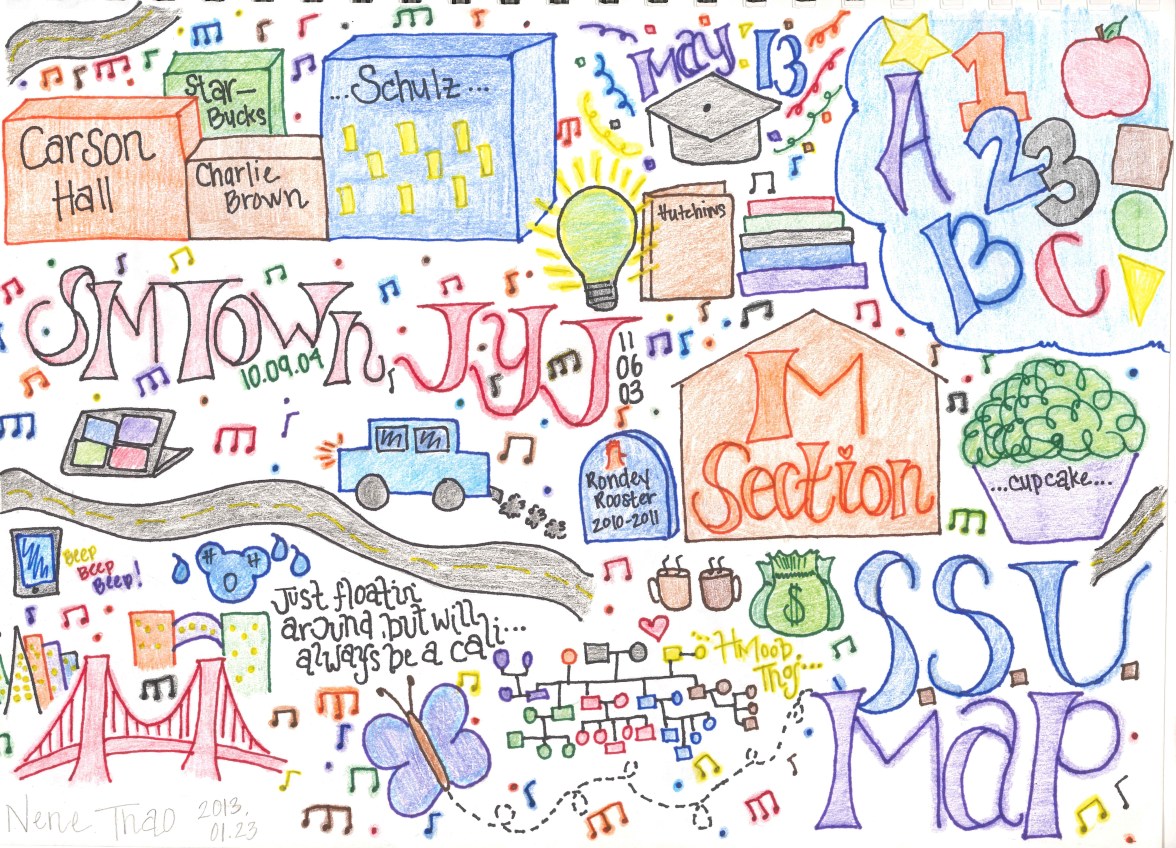 May 13
Star-
Bucks
...Schulz...
Carson
Hall
Charlie
Brown
Hutchins
A
1
2
3
B
C
SMTOWn
10.09.04
JYJ
11
06
03
M
Section
Rondey
Rooster
2010-2011
...cupcake...
Beep
Beep
Beep!
Just floatin'
around but will
always be a cali...
$
HMoob
Thoj...
S.S.U.
Map
Nene Thao 2013.
01.23